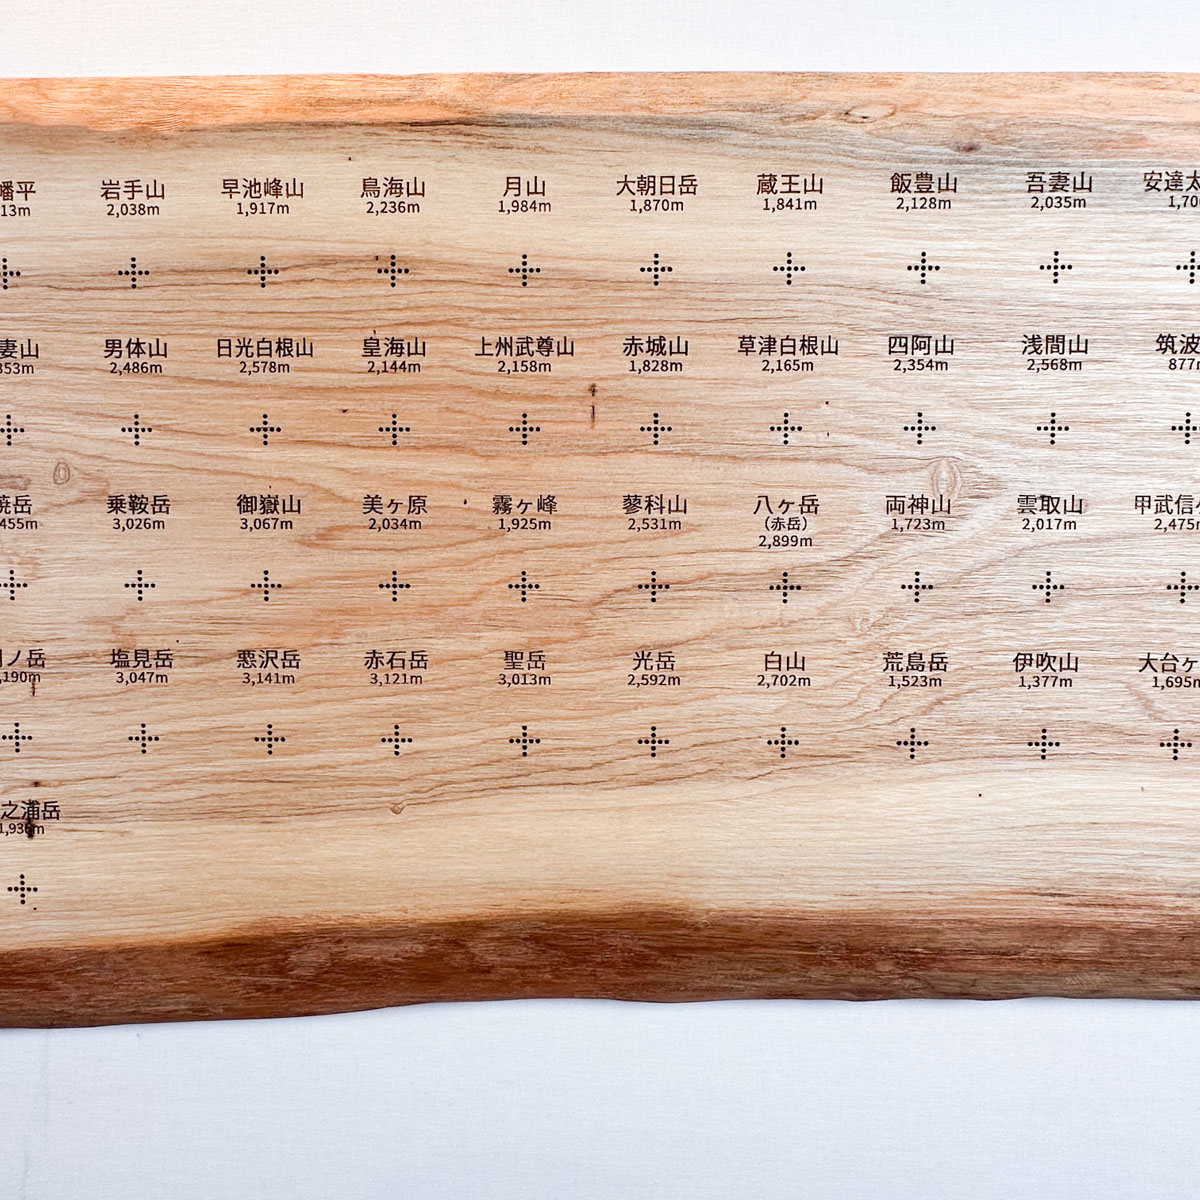 幡平 岩手山 早池峰山 鳥海山 月山 大朝日岳 蔵王山 飯豊山 吾妻山 安達太
13m 2,038m 1,917m 2,236m 1,984m 1,870m 1,841m 2,128m 2,035m 1,70
妻山 男体山 日光白根山 皇海山 上州武尊山 赤城山 草津白根山 四阿山 浅間山 筑波
353m 2,486m 2,578m 2,144m 2,158m 1,828m 2,165m 2,354m 2,568m 877m
焼岳 乗鞍岳 御嶽山 美ヶ原 霧ヶ峰 蓼科山 八ヶ岳 両神山 雲取山 甲武信
455m 3,026m 3,067m 2,034m 1,925m 2,531m （赤岳） 1,723m 2,017m 2,475m
2,899m
ノ岳 塩見岳 悪沢岳 赤石岳 聖岳 光岳 白山 荒島岳 伊吹山 大台ヶ
,190m 3,047m 3,141m 3,121m 3,013m 2,592m 2,702m 1,523m 1,377m 1,695m
之浦岳
1,936m